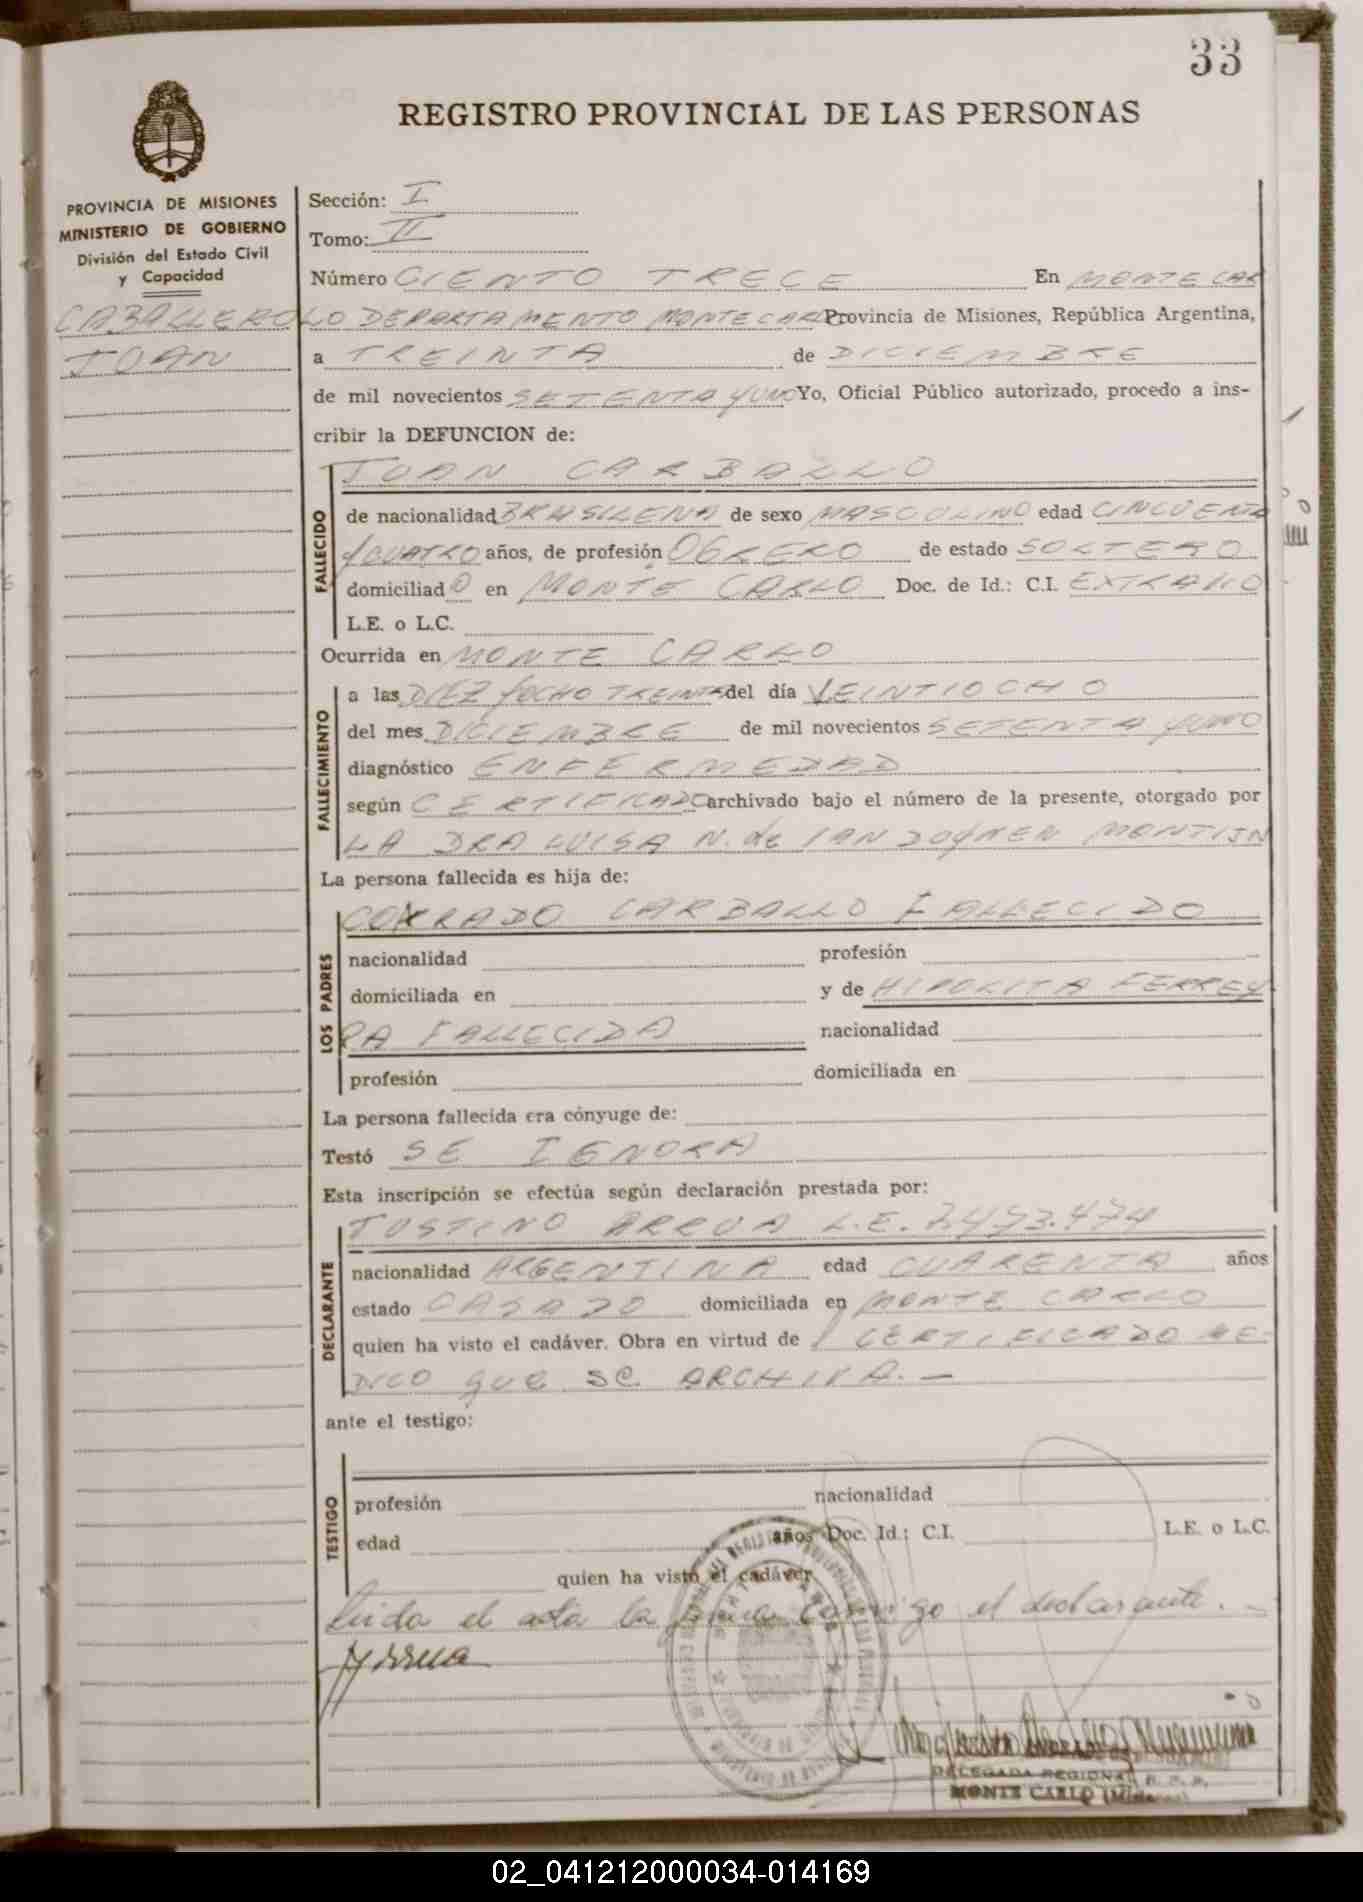 33
REGISTRO PROVINCIAL DE LAS PERSONAS
PROVINCIA DE MISIONES
MINISTERIO DE GOBIERNO
División del Estado Civil
y Capacidad
CABALLERO
JUAN
Sección: I
Tomo: II
Número CIENTO TRECE En MONTE CAR
LO DEPARTAMENTO MONTECARLO Provincia de Misiones, República Argentina,
a TREINTA de DICIEMBRE
de mil novecientos SETENTA Y UNO Yo, Oficial Público autorizado, procedo a ins-
cribir la DEFUNCION de:
JUAN CARBALLO
FALLECIDO
de nacionalidad BRASILENA de sexo MASCULINO edad CINCUENTA
Y CUATRO años, de profesión OBRERO de estado SOLTERO
domiciliado en MONTE CARLO Doc. de Id.: C.I.
L.E. o L.C.
Ocurrida en MONTE CARLO
FALLECIMIENTO
a las DIEZ Y OCHO TREINTA del día VEINTIOCHO
del mes DICIEMBRE de mil novecientos SETENTA Y UNO
diagnóstico ENFERMEDAD
según CERTIFICADO archivado bajo el número de la presente, otorgado por
LA DRA LUISA N. de
La persona fallecida es hija de:
LOS PADRES
CONRADO CARBALLO FALLECIDO
nacionalidad profesión
domiciliada en y de HIPOLITA FERREY
RA FALLECIDA nacionalidad
profesión domiciliada en
La persona fallecida era cónyuge de:
Testó SE IGNORA
Esta inscripción se efectúa según declaración prestada por:
DECLARANTE
JUSTINO ARRUA L.E. 7.473.474
nacionalidad ARGENTINA edad CUARENTA años
estado CASADO domiciliada en MONTE CARLO
quien ha visto el cadáver. Obra en virtud de / CERTIFICADO ME-
DICO que se ARCHIVA.-
ante el testigo:
TESTIGO
profesión nacionalidad
edad años Doc. Id.: C.I. L.E. o L.C.
quien ha visto el cadáver.
Leida el acta la firma conmigo el declarante. -
Arrua
DELEGADA REGIONAL R. P. P.
MONTE CARLO (Misiones)
02_041212000034-014169